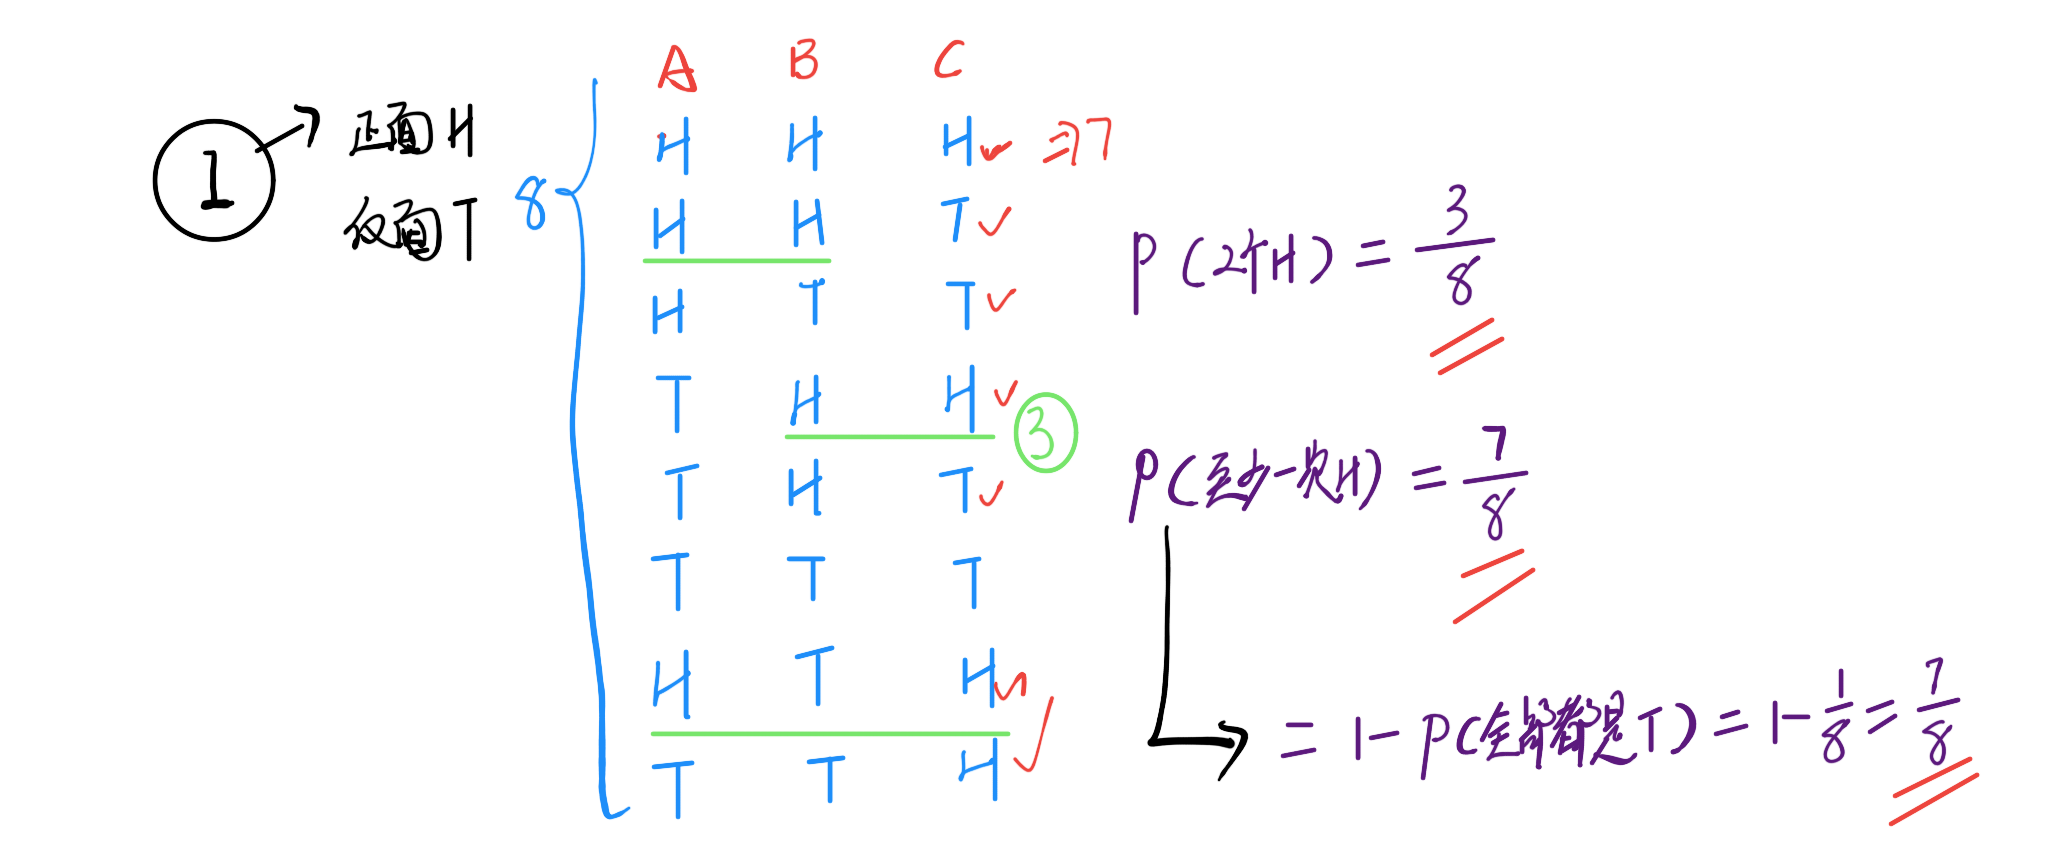 A B C
① → 正面 H
反面 T
8
H H H ✓ ⇒ 7
H H T ✓
H T T ✓
T H H ✓ ③
T H T ✓
T T T
H T H ✓
T T H ✓
P(2个H) = 3/8
P(至少一次H) = 7/8
= 1 - P(全部都是T) = 1 - 1/8 = 7/8